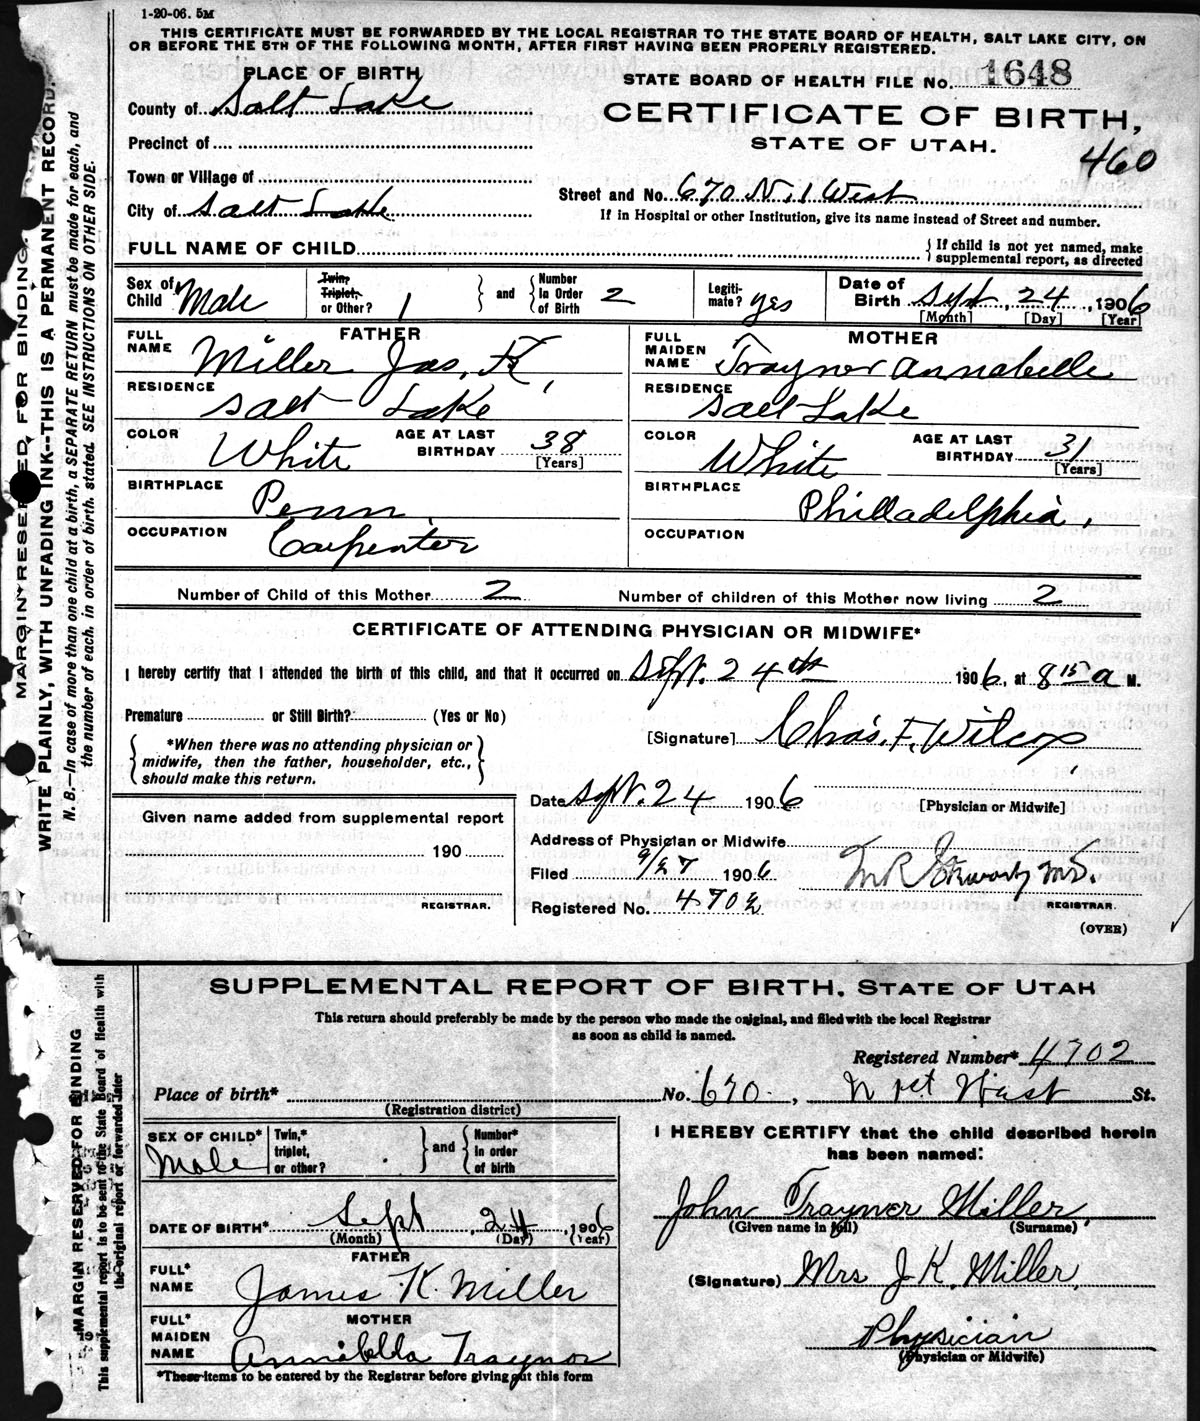 1-20-06. 5M
THIS CERTIFICATE MUST BE FORWARDED BY THE LOCAL REGISTRAR TO THE STATE BOARD OF HEALTH, SALT LAKE CITY, ON
OR BEFORE THE 5TH OF THE FOLLOWING MONTH, AFTER FIRST HAVING BEEN PROPERLY REGISTERED.
PLACE OF BIRTH
STATE BOARD OF HEALTH FILE NO. 1648
County of Salt Lake
CERTIFICATE OF BIRTH,
Precinct of
STATE OF UTAH.
460
Town or Village of
Street and No. 670 N. 1 West
City of Salt Lake
If in Hospital or other Institution, give its name instead of Street and number.
FULL NAME OF CHILD
If child is not yet named, make
supplemental report, as directed
Sex of Child Male
Twin, Triplet, or Other? 1
and
Number In Order of Birth 2
Legiti-mate? yes
Date of Birth Sept, 24, 1906
[Month] [Day] [Year]
FATHER
FULL NAME Miller Jas. K,
RESIDENCE Salt Lake
COLOR White
AGE AT LAST BIRTHDAY 38
[Years]
BIRTHPLACE Penn.
OCCUPATION Carpenter
MOTHER
FULL MAIDEN NAME Traynor Annabelle
RESIDENCE Salt Lake
COLOR White
AGE AT LAST BIRTHDAY 31
[Years]
BIRTHPLACE Philladelphia,
OCCUPATION
Number of Child of this Mother 2
Number of children of this Mother now living 2
CERTIFICATE OF ATTENDING PHYSICIAN OR MIDWIFE*
I hereby certify that I attended the birth of this child, and that it occurred on Sept. 24th 1906, at 8 15 a M.
Premature or Still Birth? (Yes or No)
*When there was no attending physician or
midwife, then the father, householder, etc.,
should make this return.
[Signature] Chas. F. Wilcox
Date Sept. 24 1906
[Physician or Midwife]
Given name added from supplemental report
190
REGISTRAR.
Address of Physician or Midwife
Filed 9/27 1906
M.D.
Registered No. 4702
REGISTRAR.
(OVER)
MARGIN RESERVED FOR BINDING.
WRITE PLAINLY, WITH UNFADING INK--THIS IS A PERMANENT RECORD.
N. B.—In case of more than one child at a birth, a SEPARATE RETURN must be made for each, and
the number of each, in order of birth, stated. SEE INSTRUCTIONS ON OTHER SIDE.
SUPPLEMENTAL REPORT OF BIRTH, STATE OF UTAH
This return should preferably be made by the person who made the original, and filed with the local Registrar
as soon as child is named.
Registered Number* 4702
Place of birth* No. 670, N 1st West St.
(Registration district)
SEX OF CHILD* Male
Twin,* triplet, or other?
and
Number* In order of birth
I HEREBY CERTIFY that the child described herein
has been named:
DATE OF BIRTH* Sept, 24, 1906
(Month) (Day) (Year)
John Traynor Miller,
(Given name in full) (Surname)
FATHER
FULL* NAME James K. Miller
(Signature) Mrs J. K. Miller,
MOTHER
FULL* MAIDEN NAME Annabella Traynor
Physician
(Physician or Midwife)
*These items to be entered by the Registrar before giving out this form
MARGIN RESERVED FOR BINDING
This supplemental report is to be sent to the State Board of Health with
the original report or forwarded later